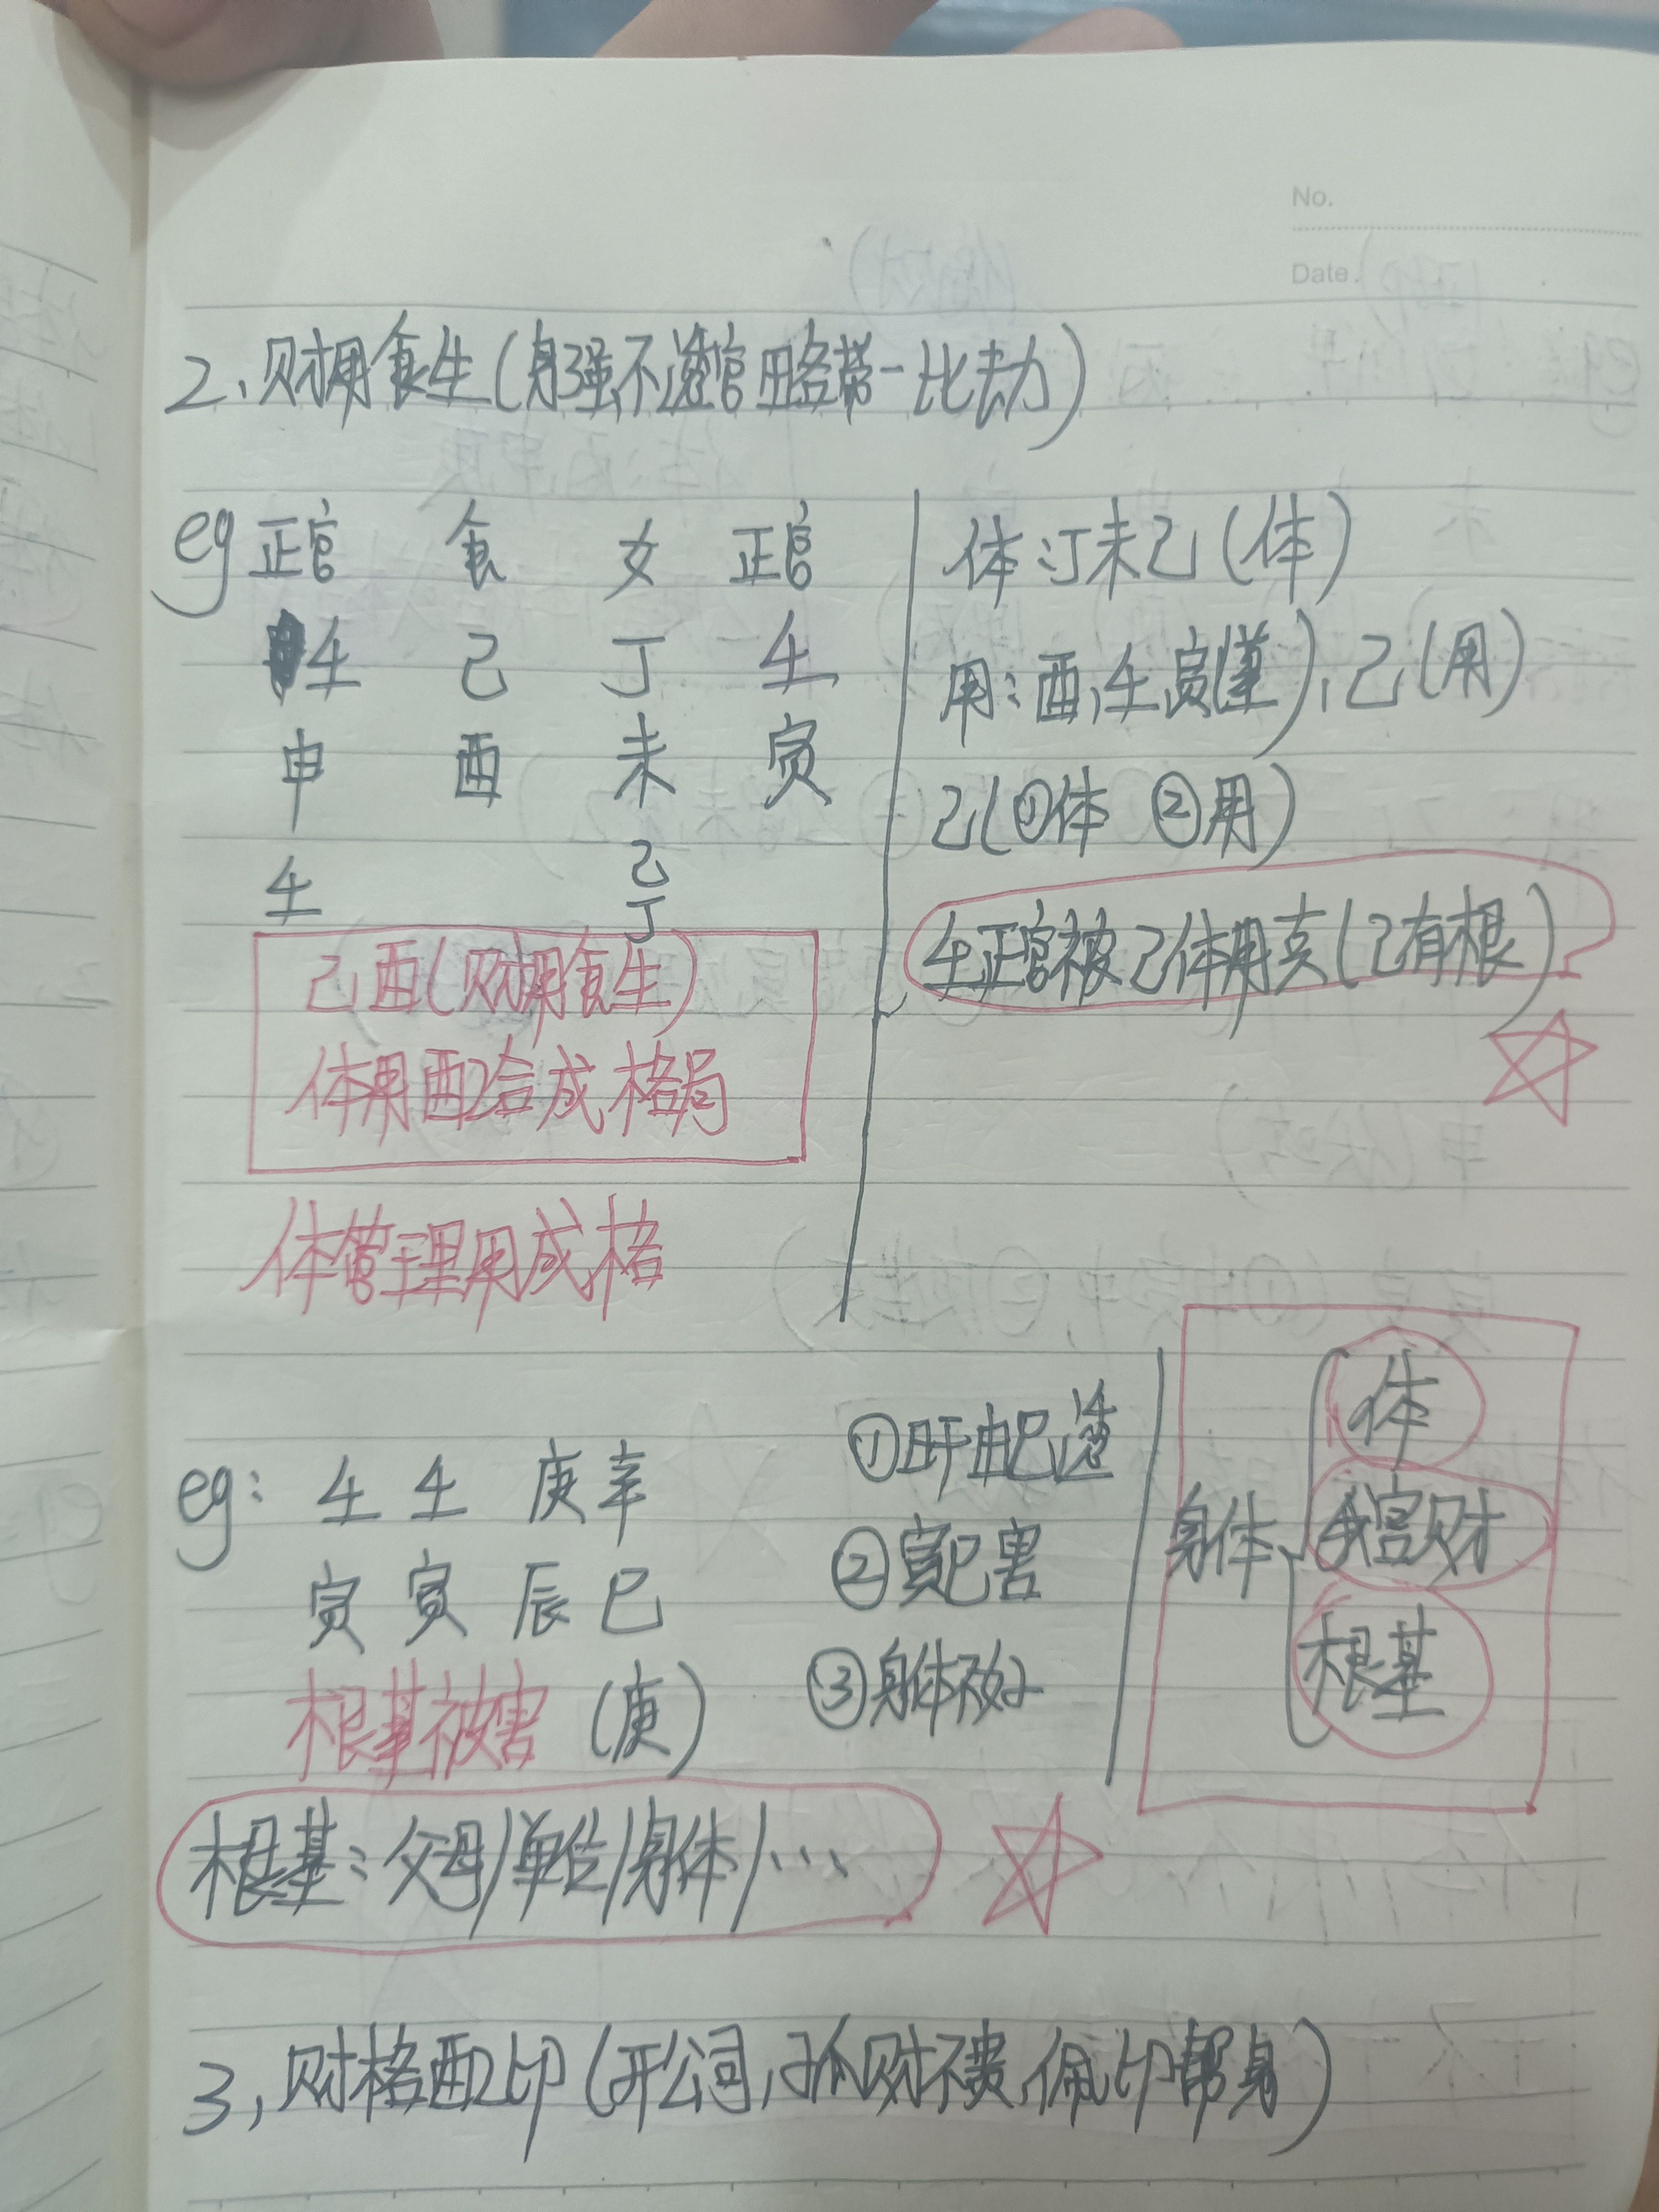 No.
Date.
2、财用食生(身强不透官略带一比劫)
eg 正官 食 女 正官
壬 己 丁 壬
申 酉 未 寅
壬 己
丁
己酉(财用食生)
体用配合成格局
体管理用成格
体:丁未己(体)
用:酉,壬寅(),己(用)
己(①体 ②用)
壬正官被己体用克(己有根)
eg: 壬 壬 庚 辛
寅 寅 辰 巳
根基被害 (庚)
①肝由巳透
②寅巳害
③身体不好
身体
体
我害财
根基
根基:父母/单位/身体/…
3,财格配印(开公司,孤财不贵,佩印帮身)